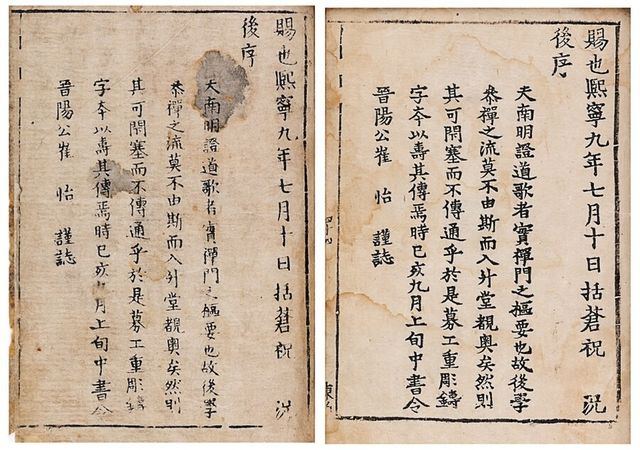 賜也熙寧九年七月十日括蒼祝 況
後序
夫南明證道歌者實禪門之樞要也故後學
叅禪之流莫不由斯而入升堂覩奧矣然則
其可閇塞而不傳通乎於是募工重彫鑄
字夲以壽其傳焉時已亥九月上旬中書令
晉陽公崔 怡 謹誌
賜也熙寧九年七月十日括蒼祝 況
後序
夫南明證道歌者實禪門之樞要也故後學
叅禪之流莫不由斯而入升堂覩奧矣然則
其可閇塞而不傳通乎於是募工重彫鑄
字夲以壽其傳焉時已亥九月上旬中書令
晉陽公崔 怡 謹誌